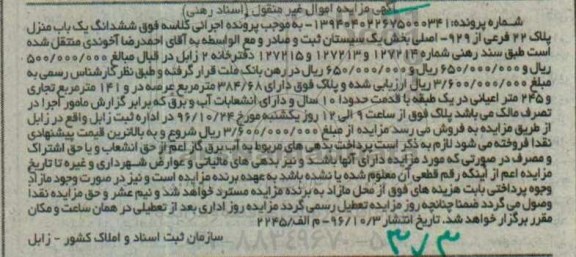 آگهی مزایده اموال غیر منقول (اسناد رهنی)
شماره پرونده: ۱۳۹۴۰۴۰۲۲۶۷۵۰۰۰۳۴/۱- به موجب پرونده اجرائی کلاسه فوق ششدانگ یک باب منزل
پلاک ۲۲ فرعی از ۹۲۹- اصلی بخش یک سیستان ثبت و صادر و مع الواسطه به آقای احمدرضا آخوندی منتقل شده
است طبق سند رهنی شماره ۱۲۷۲۱۴ و ۱۲۷۲۱۳ و ۱۲۷۲۱۵ دفترخانه ۲ زابل در قبال مبالغ ۵۰۰/۰۰۰/۰۰۰
ریال و ۶۵۰/۰۰۰/۰۰۰ ریال و ۶۵۰/۰۰۰/۰۰۰ ریال در رهن بانک ملت قرار گرفته و طبق نظر کارشناس رسمی به
مبلغ ۳/۶۰۰/۰۰۰/۰۰۰ ریال ارزیابی شده و پلاک فوق دارای ۳۸۴/۶۸ مترمربع عرصه در و ۱۴۱ مترمربع تجاری
و ۲۴۵ متر اعیانی در یک طبقه با قدمت حدودا ۱۰ سال و دارای انشعابات آب و برق که برابر گزارش مامور اجرا در
تصرف مالک می باشد پلاک فوق از ساعت ۹ الی ۱۲ روز یکشنبه مورخ ۹۶/۱۰/۲۴ در اداره ثبت زابل واقع در زابل
از طریق مزایده به فروش می رسد مزایده از مبلغ ۳/۶۰۰/۰۰۰/۰۰۰ ریال شروع و به بالاترین قیمت پیشنهادی
نقدا فروخته می شود لازم به ذکر است پرداخت بدهی های مربوط به آب، برق، گاز اعم از حق انشعاب و یا حق اشتراک
و مصرف در صورتی که مورد مزایده دارای آنها باشد و نیز بدهی های مالیاتی و عوارض شهرداری و غیره تا تاریخ
مزایده اعم از اینکه رقم قطعی آن معلوم شده یا نشده باشد به عهده برنده مزایده است و نیز در صورت وجود مازاد
وجوه پرداختی بابت هزینه های فوق از محل مازاد به برنده مزایده مسترد خواهد شد و نیم عشر و حق مزایده نقدا
وصول می گردد ضمنا چنانچه روز مزایده تعطیل رسمی گردد مزایده روز اداری بعد از تعطیلی در همان ساعت و مکان
مقرر برگزار خواهد شد. تاریخ انتشار ۹۶/۱۰/۳- م الف/۲۲۴۵
سازمان ثبت اسناد و املاک کشور - زابل
۳۷۳